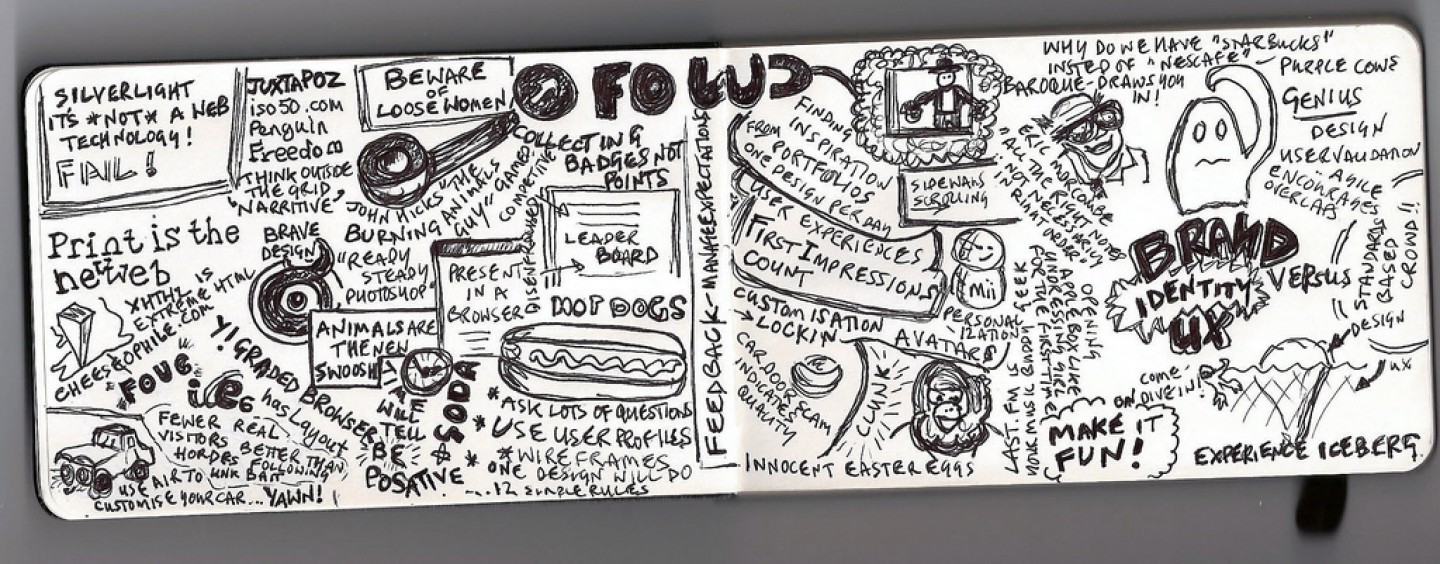 SILVERLIGHT
ITS *NOT* A WEB
TECHNOLOGY!
FAIL!
JUXTAPOZ
iso50.com
Penguin
Freedom
THINK OUTSIDE
THE GRID
"NARRITIVE"
BEWARE
OF
LOOSE WOMEN
JOHN HICKS "THE
BURNING ANIMALS
GUY"
COLLECTING
BADGES NOT
POINTS
GAMED
COMPETITIVE
DISENFRANCHISED
LEADER
BOARD
Print is the
new web
BRAVE
DESIGN
"READY
STEADY
PHOTOSHOP"
PRESENT
IN A
BROWSER
XHTML IS
EXTREME HTML
CHEESEOPHILE.COM
ANIMALS ARE
THE NEW
SWOOSH
HOT DOGS
Y! GRADED BROWSER
ie6
has Layout
TIME
WILL
TELL
BE
POSATIVE
SODA
FEWER REAL
VISITORS BETTER THAN
HORDES FOLLOWING
LINK BAIT
USE AIR TO
CUSTOMISE YOUR CAR... YAWN!
* ASK LOTS OF QUESTIONS
* USE USER PROFILES
* WIREFRAMES
* ONE DESIGN WILL DO
...12 SIMPLE RULES
FEEDBACK - MANAGE EXPECTATIONS
FINDING
INSPIRATION
FROM PORTFOLIOS
ONE DESIGN PER DAY
USER EXPERIENCES
FIRST IMPRESSIONS
COUNT
SIDEWAYS
SCROLLING
Mii
PERSONAL
IZATION
CUSTOMISATION
→ LOCKIN
AVATARS
CAR DOOR SLAM
INDICATES
QUALITY
CLUNK
INNOCENT EASTER EGGS
WHY DO WE HAVE "STARBUCKS"
INSTED OF "NESCAFE"
BAROQUE - DRAWS YOU
IN!
ERIC MORECAMBE
"ALL THE RIGHT NOTES
NOT NECESSARILY
IN RIGHT ORDER"
OPENING
APPLE BOX LIKE
UNDRESSING GIRL
FOR THE FIRST TIME
LAST.FM IS
YOUR MUSIC BUDDY
GEEK
PURPLE COWS
GENIUS
DESIGN
USER VALIDATION
AGILE
ENCOURAGES
OVERLAP
BRAND
IDENTITY
UX
VERSUS
STANDARDS
BASED
CROWD!!
DESIGN
UX
COME
ON DIVE IN!
MAKE IT
FUN!
EXPERIENCE ICEBERG.